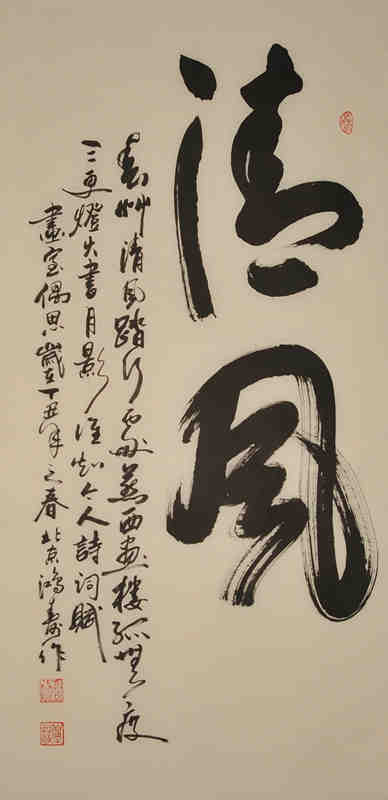 清風
春艸清風踏行西畫樓孤夜
三更燈火書月影誰知今人詩詞賦
畫室偶思歲在丁丑年之春北京鴻壽作